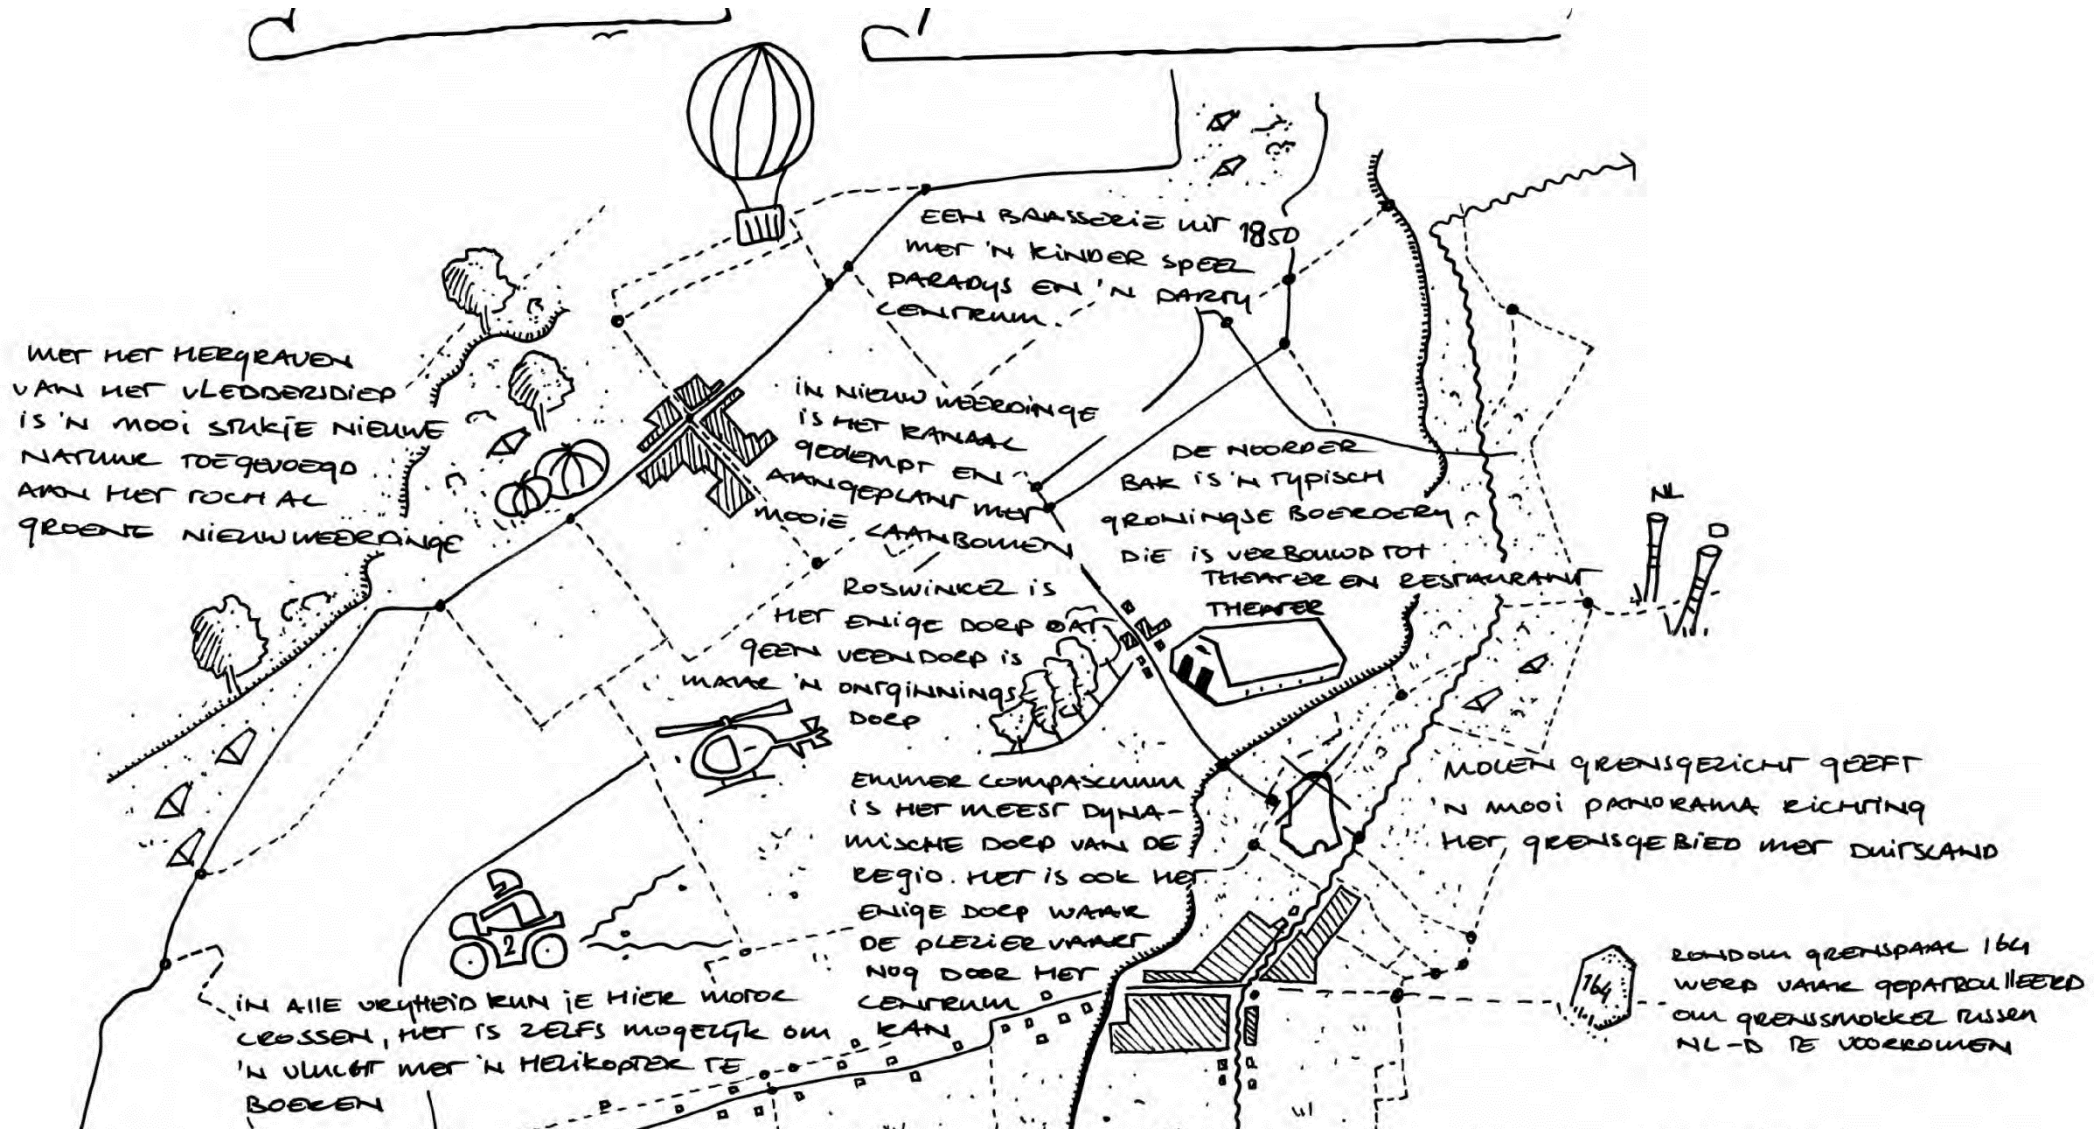 EEN BRASSERIE UIT 1850
MET 'N KINDER SPEEL
PARADYS EN 'N PARTY
CENTRUM.
MET HET HERGRAVEN
VAN HET VLEDDERSDIEP
IS 'N MOOI STUKJE NIEUWE
NATUUR TOEGEVOEGD
AAN HET TOCH AL
GROENE NIEUW WEERDINGE
IN NIEUW WEERDINGE
IS HET KANAAL
GEDEMPT EN
AANGEPLANT MET
MOOIE LAANBOMEN
DE NOORDER
BAK IS 'N TYPISCH
GRONINGSE BOERDERY
DIE IS VERBOUWD TOT
THEATER EN RESTAURANT
THEATER
NL
D
ROSWINKEL IS
HET ENIGE DORP DAT
GEEN VEENDORP IS
MAAR 'N ONTGINNINGS
DORP
EMMER COMPASCUUM
IS HET MEEST DYNA-
MISCHE DORP VAN DE
REGIO. HET IS OOK HET
ENIGE DORP WAAR
DE PLEZIERVAART
NOG DOOR HET
CENTRUM
KAN
MOLEN GRENSGEZICHT GEEFT
'N MOOI PANORAMA RICHTING
HET GRENSGEBIED MET DUITSLAND
2
2
IN ALLE VRYHEID KUN JE HIER MOTOR
CROSSEN, HET IS ZELFS MOGELYK OM
'N VLUCHT MET 'N HELIKOPTER TE
BOEKEN
164
RONDOM GRENSPAAL 164
WERD VAAK GEPATROUILLEERD
OM GRENSSMOKKEL TUSSEN
NL-D TE VOORKOMEN